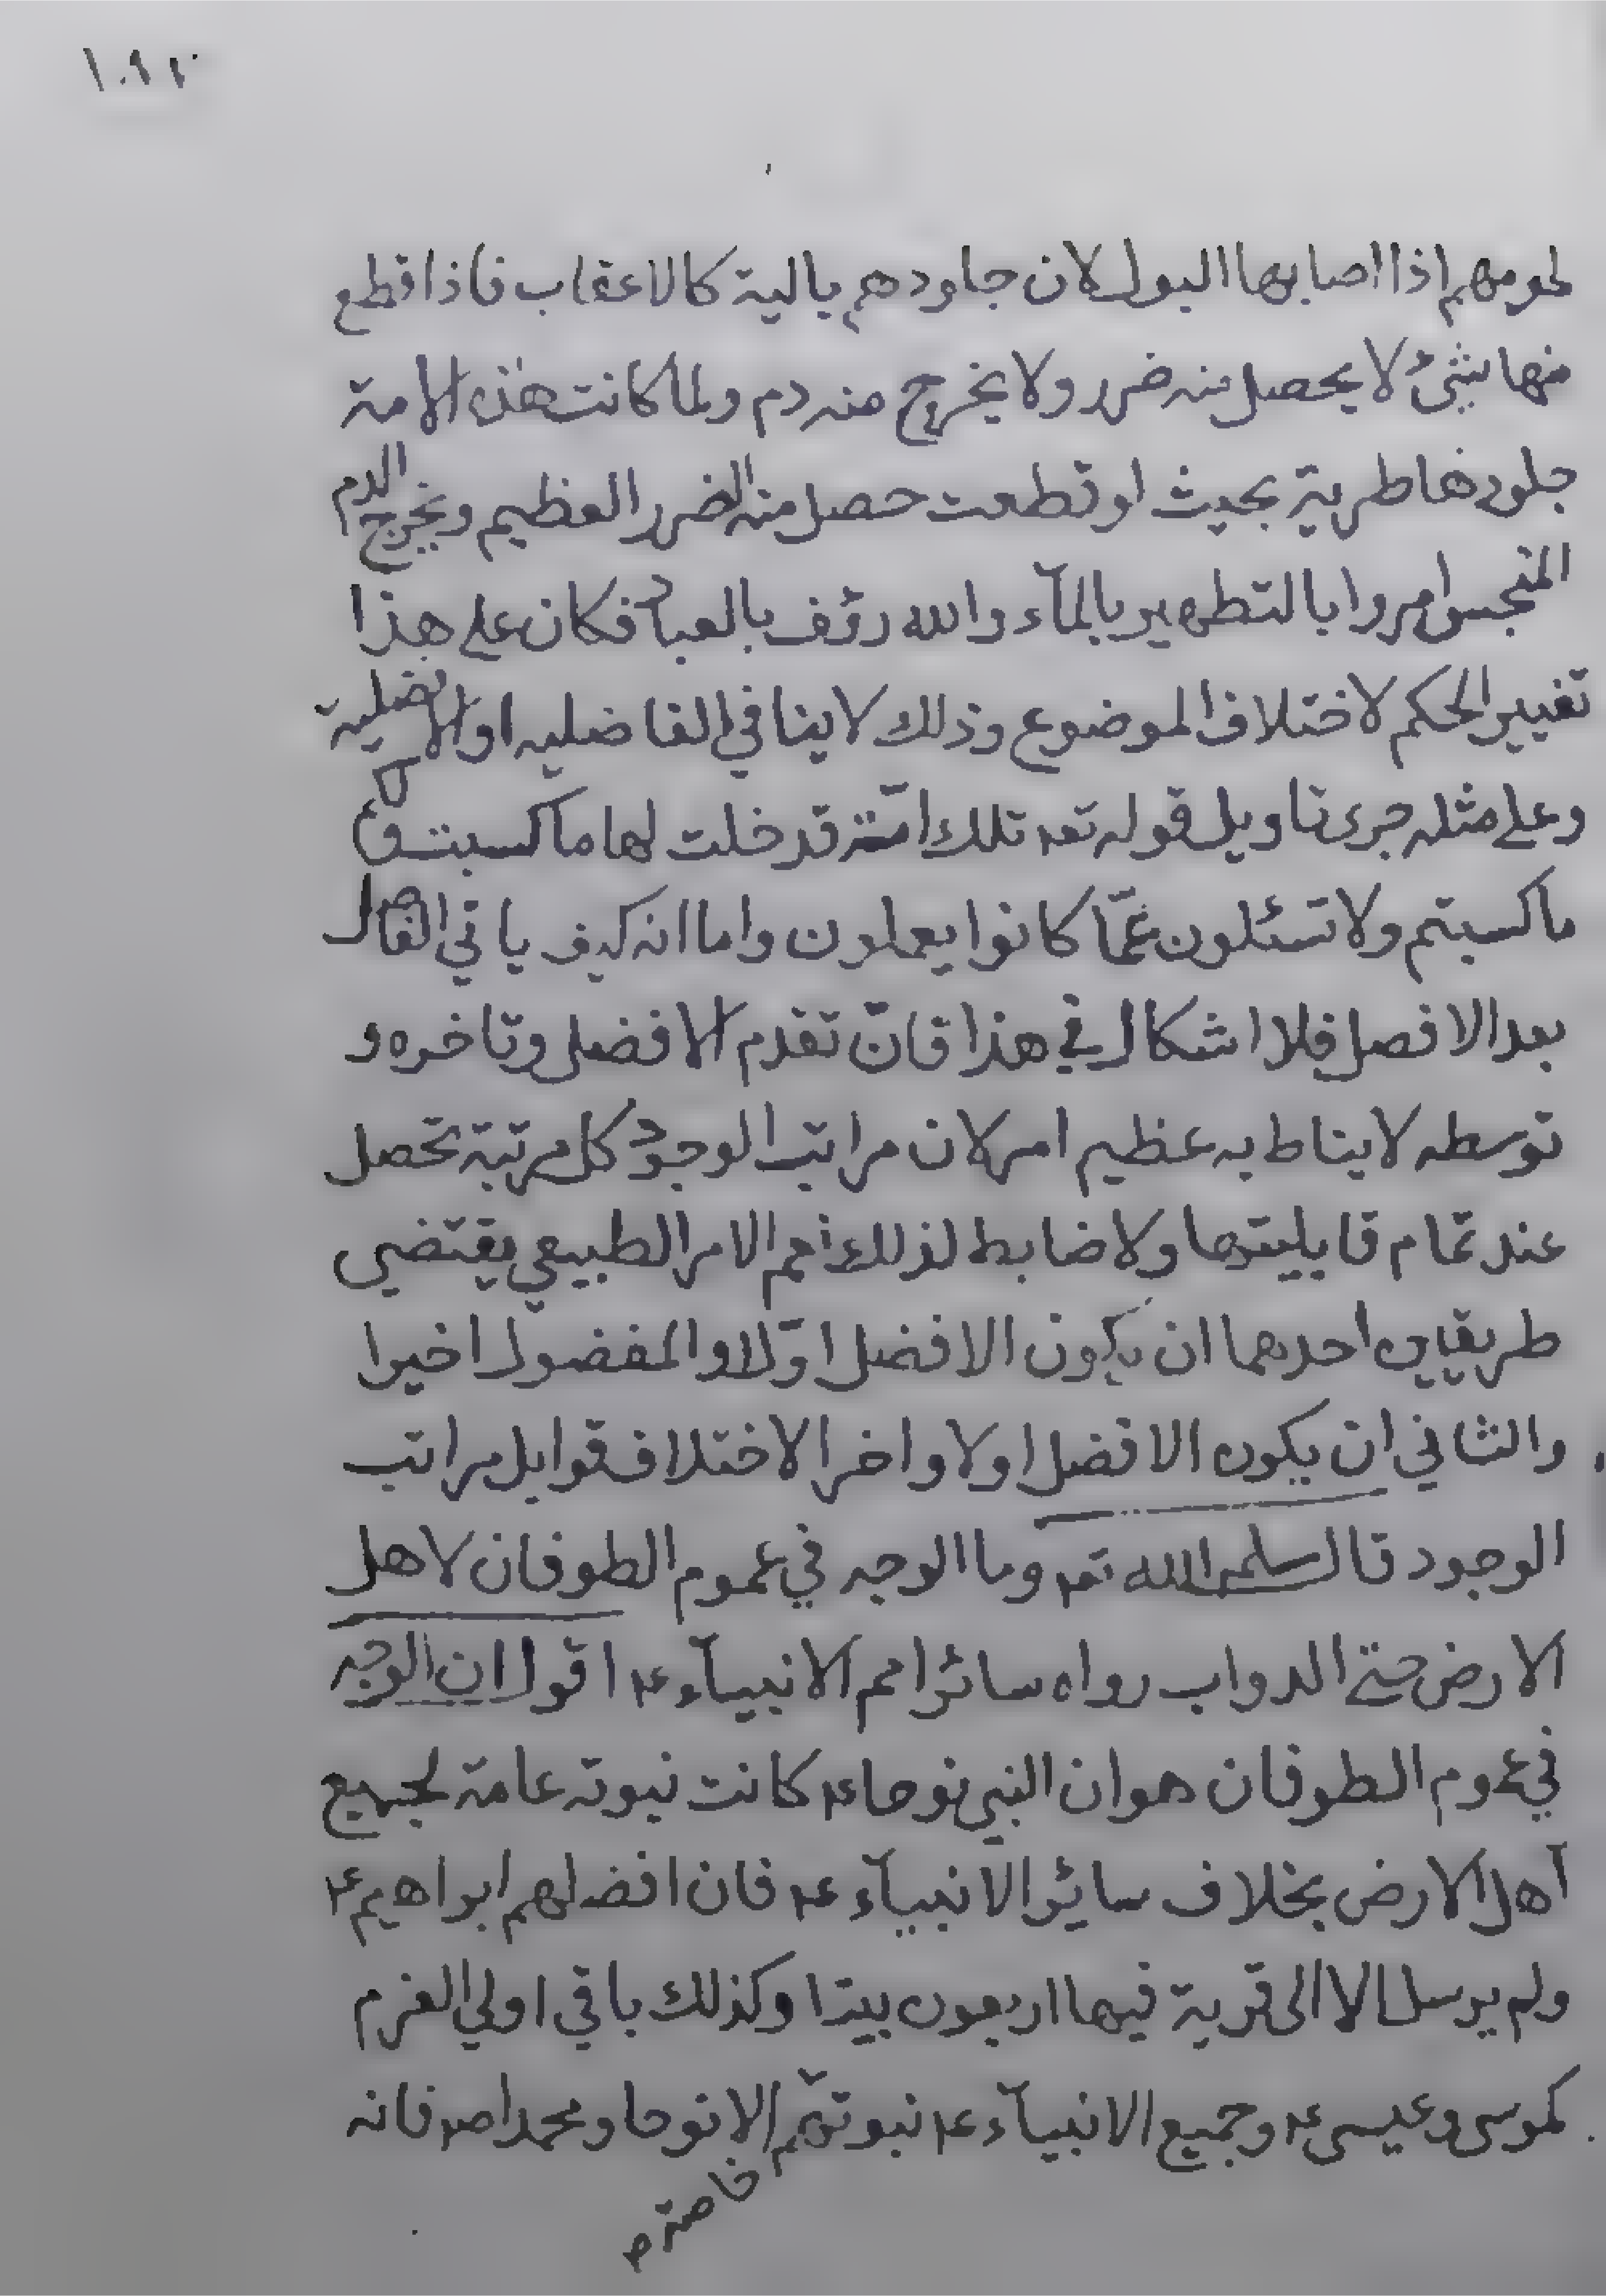 لحومهم اذا اصابها البول لان جلودهم يالية كالاعقاب فاذا قطع
منها شئ لا يحصل منه ضرر ولا يخرج منه دم ولما كانت هذه الامة
جلودها طرية بحيث لو قطعت حصل منه الضرر العظيم ويخرج الدم
المنجس امروا بالتطهير بالمآء والله رؤف بالعباد فكان على هذا
تغيير الحكم لاختلاف الموضوع وذلك لا ينافي الفاضليه او الافضلية
وعلى مثله جرى تاويل قوله تعه تلك امّة قد خلت لها ما كسبت ولكم
ما كسبتم ولا تسئلون عمّا كانوا يعملون واما انه كيف ياتي الفاضل
بعد الافصل فلا اشكال في هذا فانّ تقدم الافضل وتاخره و
توسطه لا يناط به عظيم امر لان مراتب الوجود كل مرتبة تحصل
عند تمام قابليتها ولا ضابط لذلك نعم الامر الطبيعي يقتضي
طريقين احدهما ان يكون الافضل اوّلا والمفضول اخيرا
والثاني ان يكون الافضل اولا واخرا لاختلاف قوابل مراتب
الوجود قال سلمه الله تعه وما الوجه في عموم الطوفان لاهل
الارض حتى الدواب رواه سائر امم الانبيآء ع۴ اقول ان الوجه
في عموم الطوفان هو ان النبي نوحا ع۴ كانت نبوته عامة لجميع
أهل الارض بخلاف سائر الانبيآء ع۴ فان افضلهم ابراهيم ع۴
ولم يرسل الا الى قرية فيها اربعون بيتا وكذلك باقي اولي العزم
كموسى وعيسى ع۴ وجميع الانبيآء ع۴ نبوتهم الا نوحا ومحمدا ص۴ فانه
خاصة م